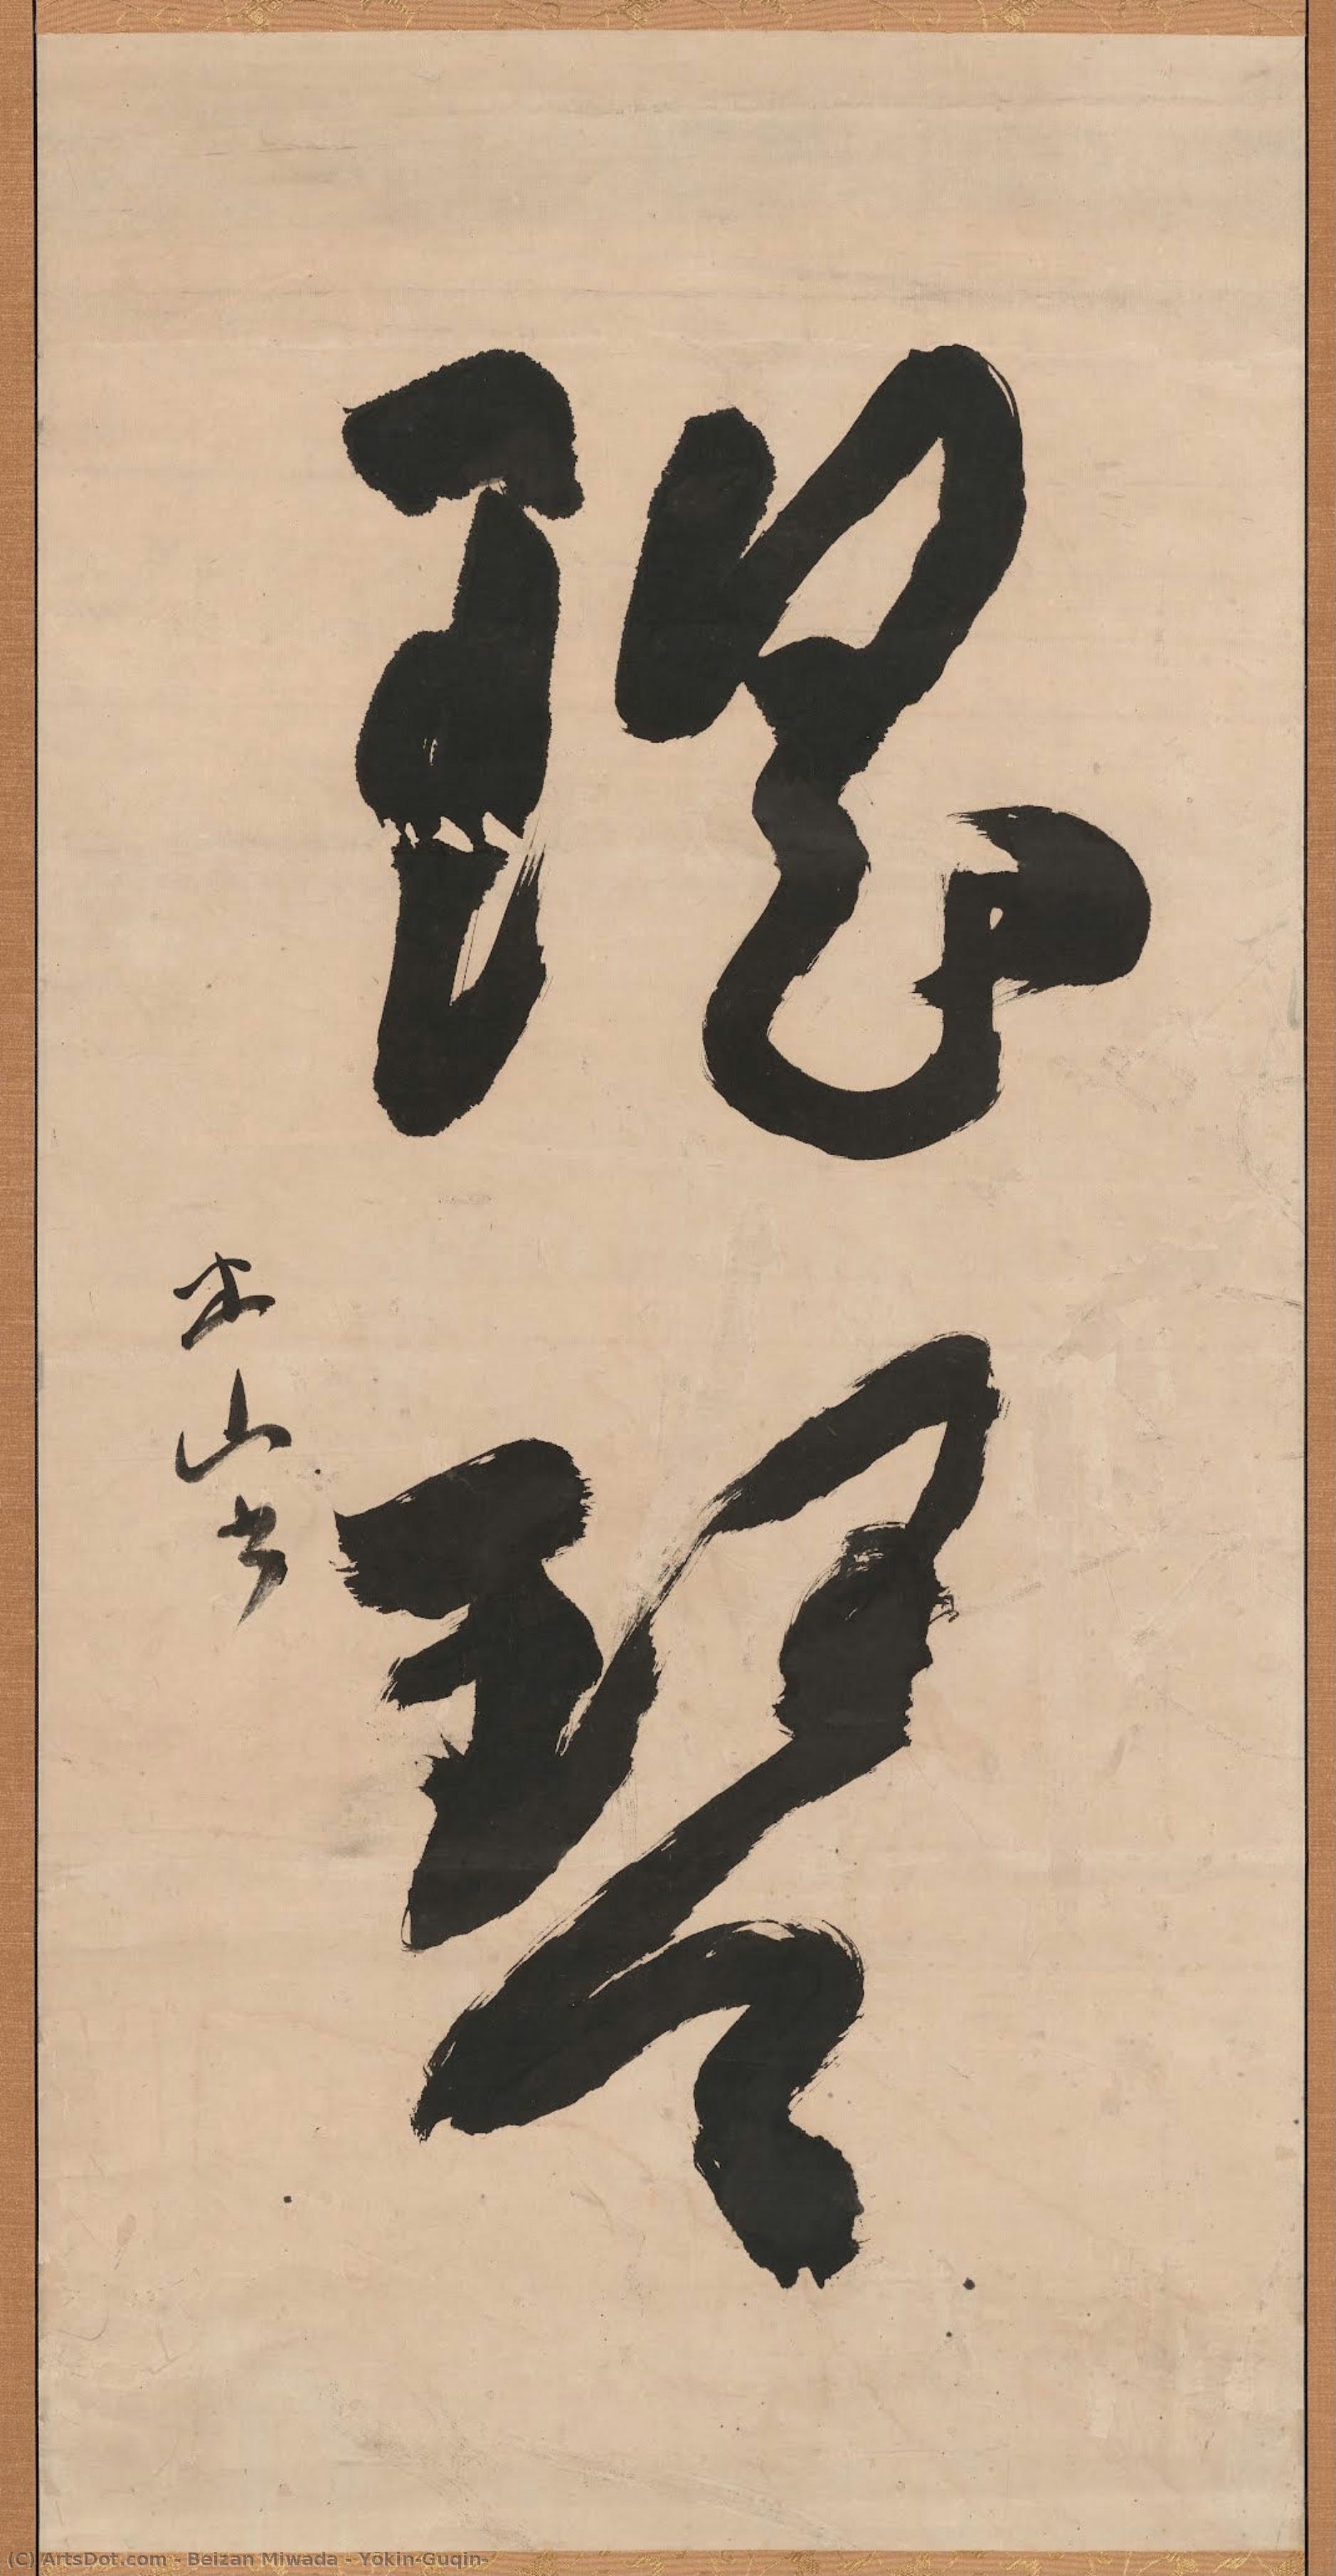 瑶琴
米山书
(C) ArtsDot.com - Beizan Miwada - Yōkin-Guqin-